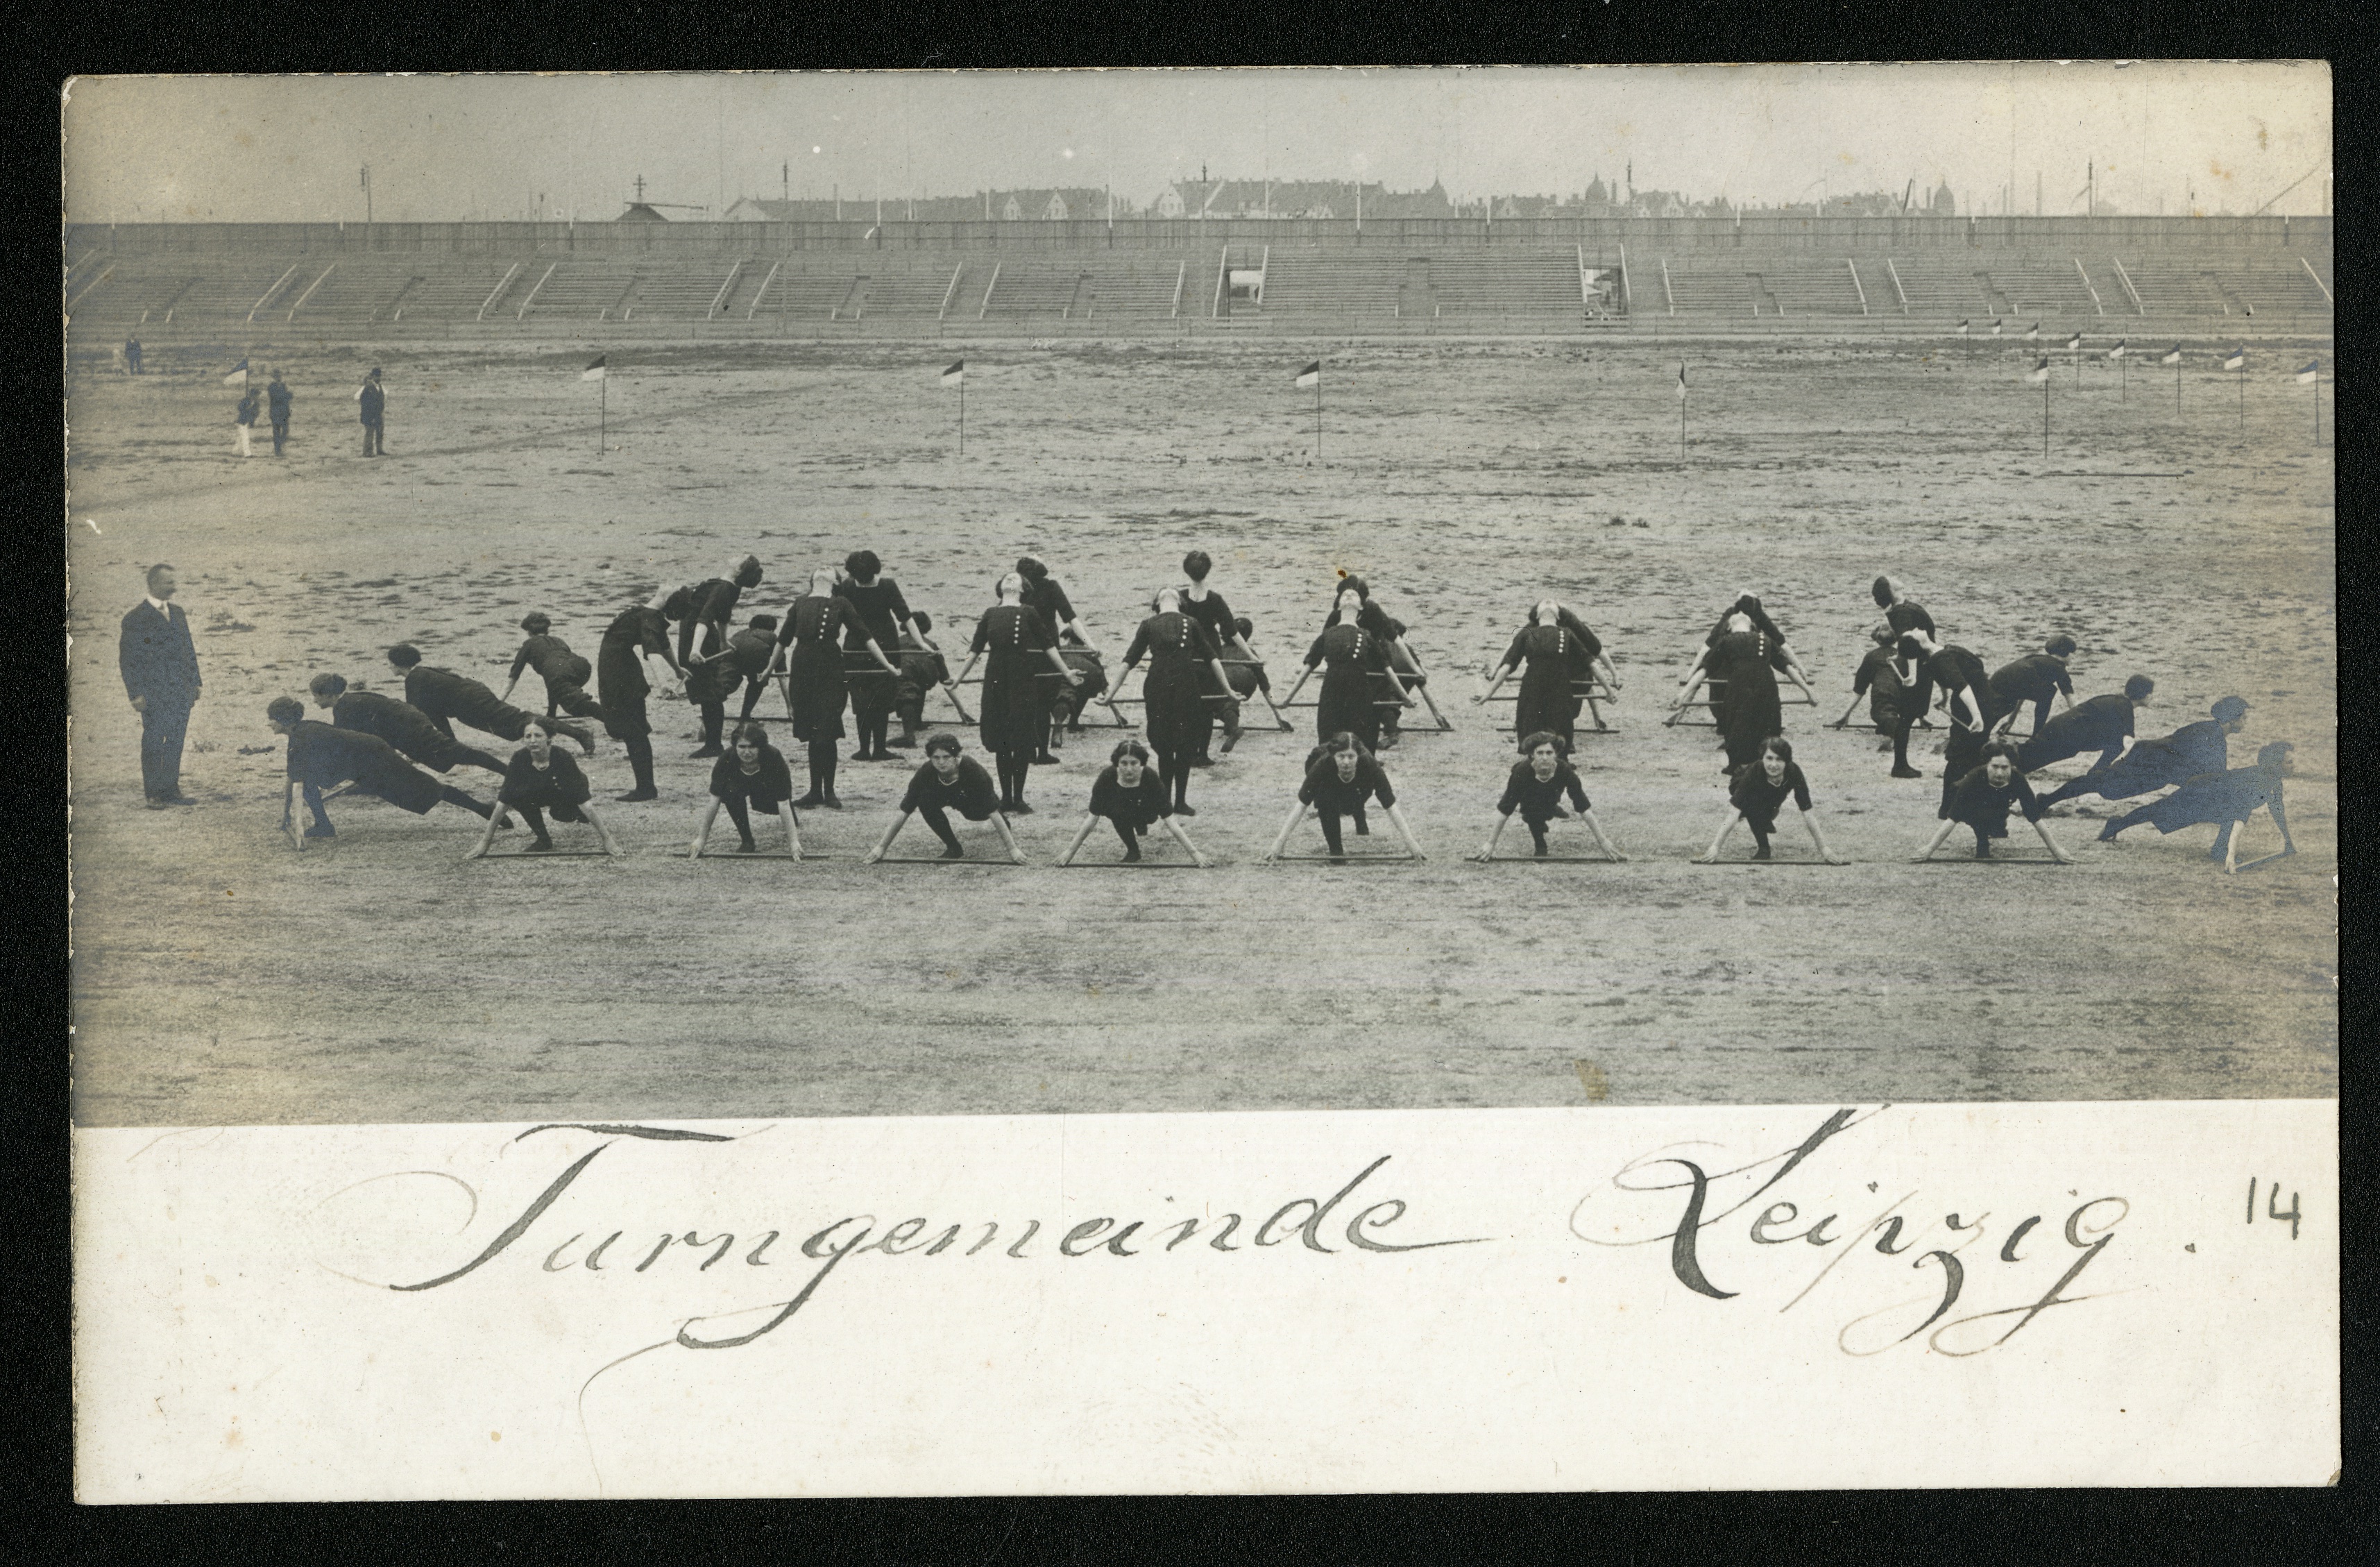 Turngemeinde Leipzig. 14